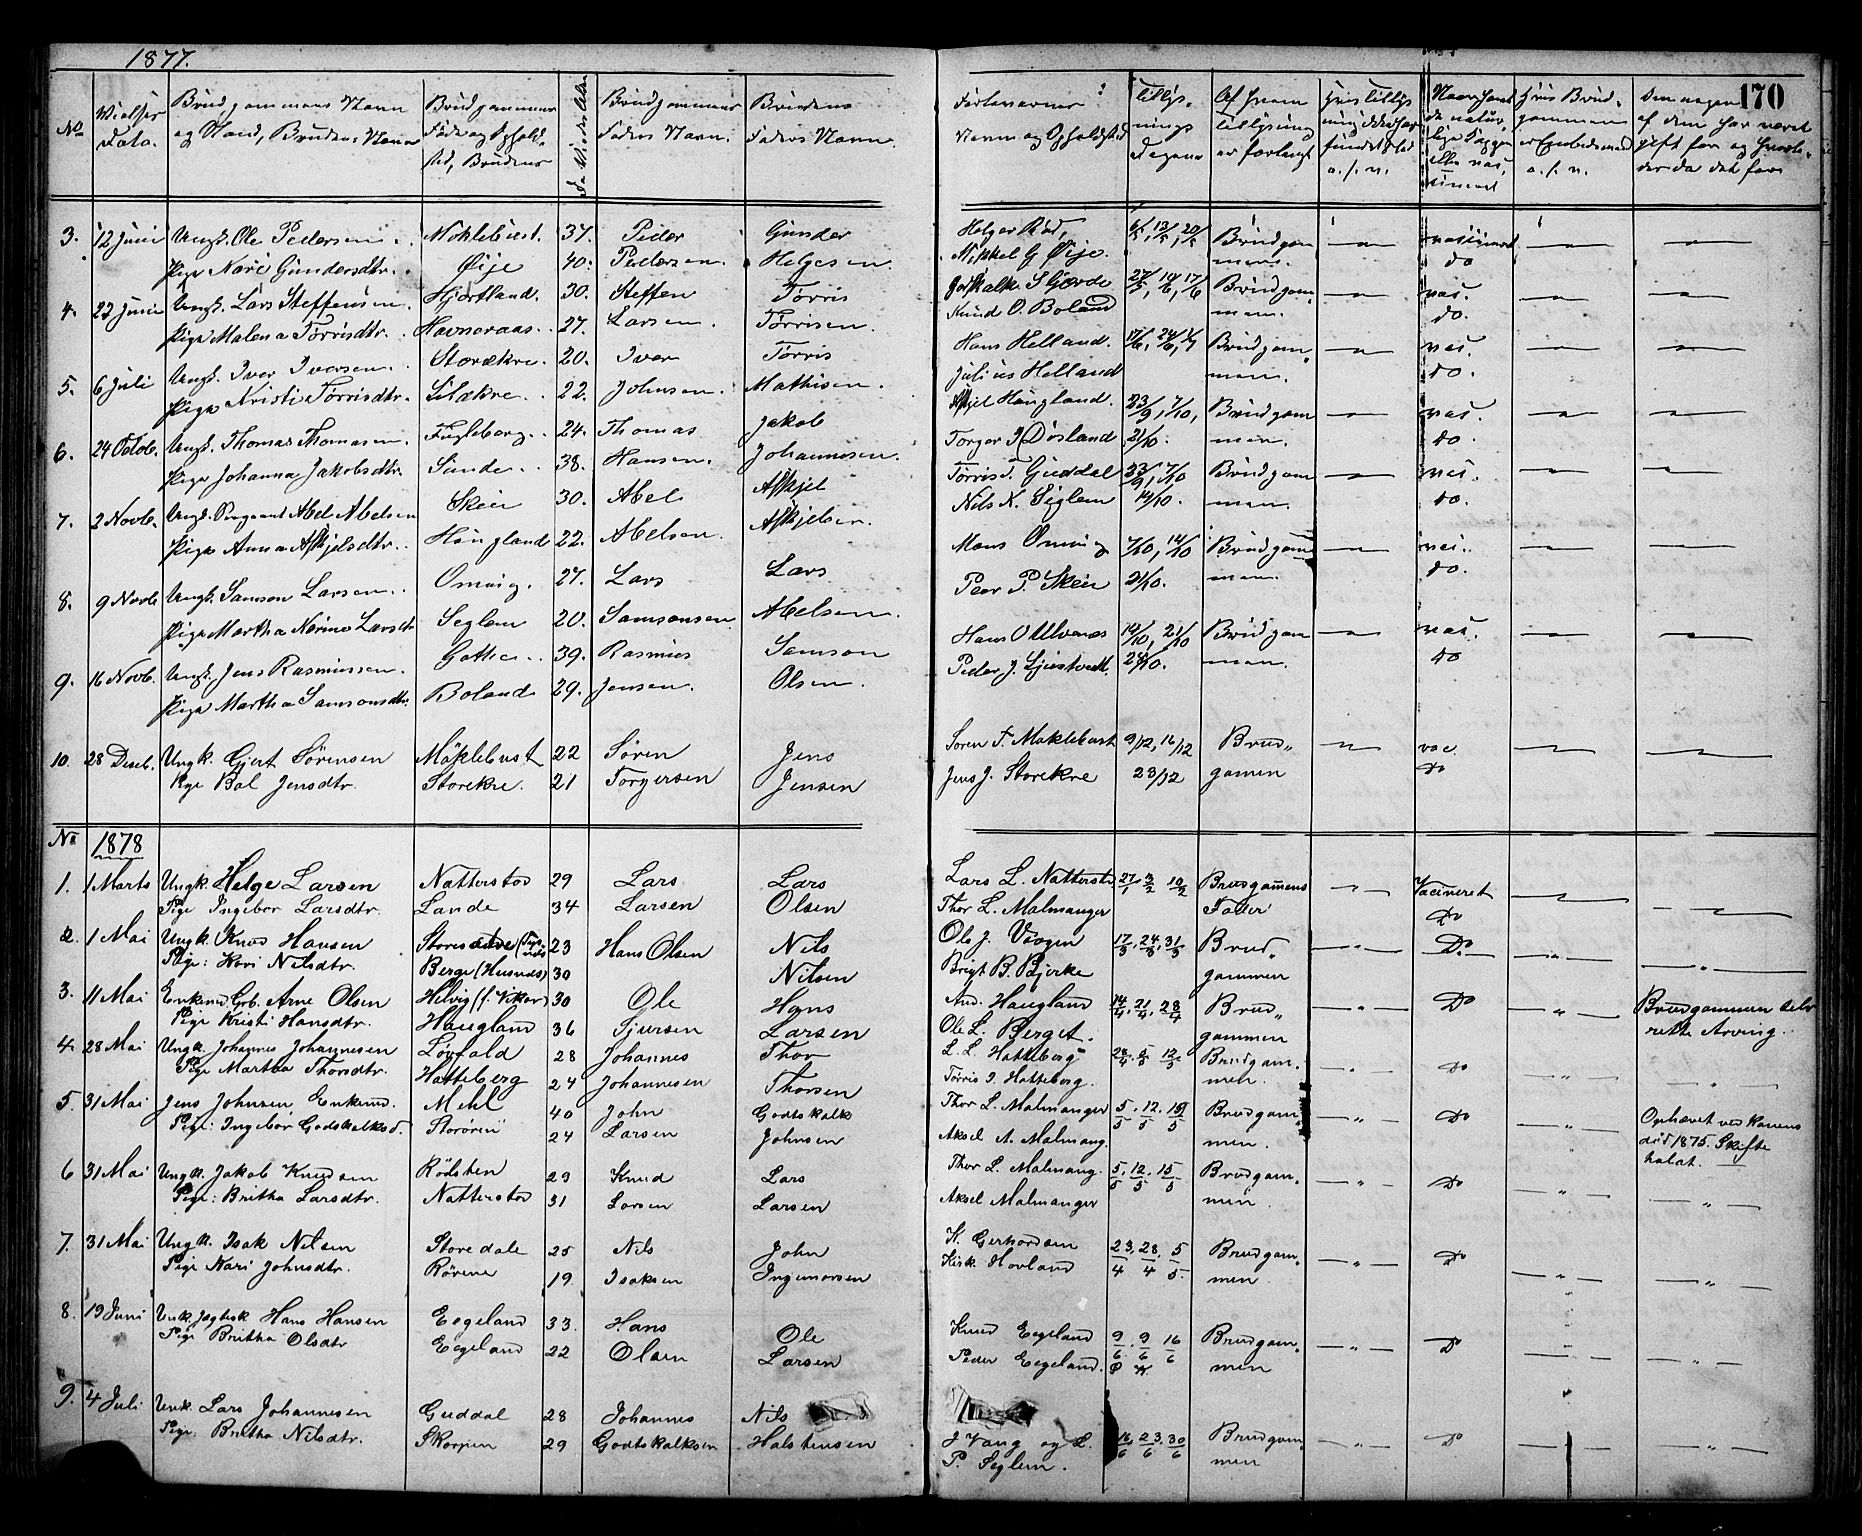 1877.
No
Vielses Dato.
Brudgommens Navn og Stand, Brudens Navn
Brudgommens Føde og Opholdsted, Brudens
Brudgommens Faders Navn.
Brudens Faders Navn.
Forlovernes Navn og Opholdsted
Tillysnings Dagene
Af hvem tillysning er forlangt
170
3. 12 Juni Ungk. Ole Pedersen. Møklebust. 37. Peder Gunder Helger Rød, 6/5, 13/5, 20/5 Brudgom
Pige Kari Gundersdtr. Øije 40. Pedersen. Helgesen. Mikkel G Øije. mens. do
4. 22 Juni Ungk. Lars Steffensen Hjortland. 30. Steffen Tørris 27/5, 10/6, 17/6 Brudgom vac.
Pige Malena Tørrisdtr. Havneraas. 27. Larsen. Tørrisen. Knud O. Boland men. do.
5. 6 Juli Ungk. Iver Iversen. Storækre. 20. Iver Tørris Hans Helland. 17/6, 24/6, 1/7 Brudgom vac.
Pige Kristi Tørrisdtr. Lilækre. 22. Johnsen. Mathisen. Julius Helland men. do.
6. 24 Octob. Ungk. Thomas Thomasen. Fugleberg. 24. Thomas Jakob Askjel Haugland. 23/9, 7/10, Brudgom vac.
Pige Johanna Jakobsdtr. Sunde. 38. Hansen. Johannesen. Torger I Døsland 21/10. men. do.
7. 2 Novb. Ungk. Abel Abelsen Skeie 30. Abel Askjel Tørris T. Guddal 23/9, 7/10 Brudgom vac.
Pige Anna Askjelsdtr. Haugland 22. Abelsen. Askjelsen. Nils N. Seglem 14/10. men. do.
8. 9 Novb Ungk. Samson Larsen. Omvig. 27. Lars Lars Mons Omvig 7/10, 14/10 Brudgom vac.
Pige Martha Larsdtr Seglem 20. Samsonsen Abelsen. Peer P. Skeie 21/10. men. do.
9. 16 Novb. Ungk. Jens Rasmussen. 39. Rasmus Samson Hans O Ulvenes 14/10, 21/10 Brudgom vac.
Pige Martha Samsonsdtr. Boland 29. Jensen. Olsen. Peder J. 28/10. men. do
10. 28 Deseb. Ungk. Gjert Sørensen Møklebust 22 Søren Jens Søren T. Møklebust 9/12, 16/12 Brud„ vac
Pige Bol Jensdtr. Storekre. 21 Torgersen Jensen Jens J. Storekre 23/12 gomen Do
No 1878
1. 1 Marts Ungk. Helge Larsen Natterstad 29 Lars Lars Lars L. Natterstad 27/1 3/2 10/2 Brudgomens Vacineret
Pige Ingebor Larsdtr. Lande 34 Larsen Olsen Thor L. Malmanger Fader Do
2. 1 Mai Ungk. Knud Hansen 23 Hans Olsen Nils Ole J. Vaagen 17/3. 24/3. 31/3 Brud„ Do.
Pige: Kari Nilsdtr. Berge (Husnes) 30 Nilsen Brigt B. Bjerke gommen
3. 11 Mai Enkemd Grb. Arne Olsen Helvig (f. Vikør) 30 Ole Hans And. Haugland 14/4. 21/4. 28/4 Brud„ Do Brudgommen selv
Pige Kristi Hansdtr. Haugland 36 Sjursen Larsen Ole L. Berget. gommen rette Arving.
4. 28 Mai Ungk. Johannes Johannesen Løvfald 28 Johannes Thor L. L. Hatteberg 28/4. 5/5 12/5 Brudgom„ Do
Pige Martha Thorsdtr. Hatteberg 24 Johannesen Thorsen Tørris J. Hatteberg. men.
5. 31 Mai Jens Johnsen, Enkemd. Mehl 40 John Godtskalk Thor L. Malmanger 5/5. 12/5. 19/5 Brudgom„ Do Ophævet ved Konens
Pige: Ingebor Godskalksd. Storøren 24 Larsen Johnsen Aksel A. Malmang. men. død 1875. Skifte
holdt.
6 31 Mai Ungk. Jakob Knudsen Rødsten 29 Knud Lars Thor L. Malmang. 5/5. 12/5. 15/5 Brudgom„ Do
Pige: Britha Larsdtr. Natterstad 31 Larsen Larsen Aksel Malmanger men
7. 31 Mai Ungk. Isak Nilsen Storedale 25 Nils John K. Gerhardsen 23/4. 28/4. 5/5. Brudgom„ Do
Pige Kari Johnsdtr. Rørene 19. Isaksen Ingemorsen Kirk. Hovland men
8. 19 Juni Unk. Hans Hansen Eegeland 33. Hans Ole Knud Eegeland 9/6. 9/6 16/6 Brudgom„ Do
Pige Britha Olsdtr Eegeland 22 Olsen Larsen Peder Eegeland. men
9. 4 Juli Unk. Lars Johannesen Guddal 28 Johannes Nils J Vaag og L. 16/6 23/6. 30/6 Brudgom„ Do
Pige: Britha Nilsdtr. Skorpen 29 Godtskalksen Halstensen P. Seglem. men